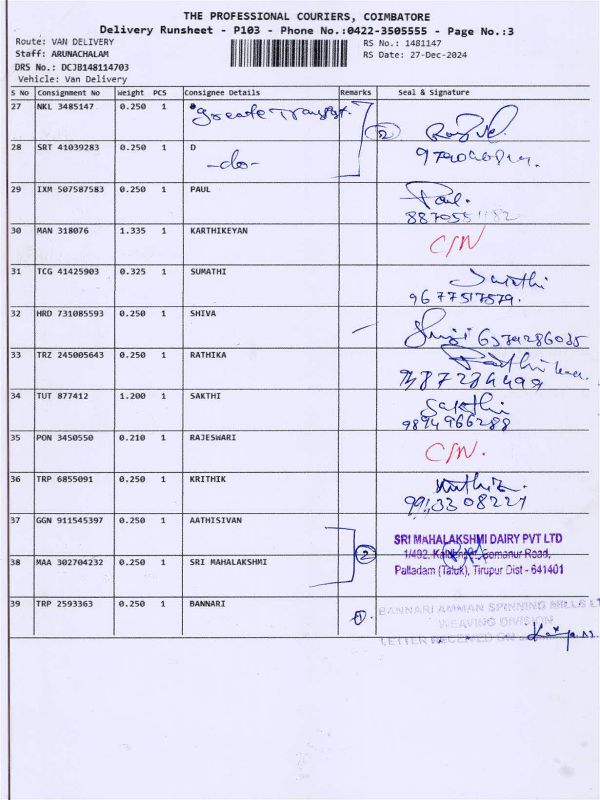 THE PROFESSIONAL COURIERS, COIMBATORE
Delivery Runsheet - P103 - Phone No.:0422-3505555 - Page No.:3
Route: VAN DELIVERY RS No.: 1481147
Staff: ARUNACHALAM RS Date: 27-Dec-2024
DRS No.: DCJB148114703
Vehicle: Van Delivery
S No Consignment No Weight PCS Consignee Details Remarks Seal & Signature
27 NKL 3485147 0.250 1
28 SRT 41039283 0.250 1 D
-do- 2
29 IXM 507587583 0.250 1 PAUL Paul.
8870551182
30 MAN 318076 1.335 1 KARTHIKEYAN C/N
31 TCG 41425903 0.325 1 SUMATHI
9677517579.
32 HRD 731085593 0.250 1 SHIVA
33 TRZ 245005643 0.250 1 RATHIKA
34 TUT 877412 1.200 1 SAKTHI Sakthi
9894966288
35 PON 3450550 0.210 1 RAJESWARI C/N.
36 TRP 6855091 0.250 1 KRITHIK
9943308227
37 GGN 911545397 0.250 1 AATHISIVAN SRI MAHALAKSHMI DAIRY PVT LTD
2 1/492, Somanur Road,
38 MAA 302704232 0.250 1 SRI MAHALAKSHMI Palladam (Taluk), Tirupur Dist - 641401
39 TRP 2593363 0.250 1 BANNARI 1. BANNARI AMMAN SPINNING MILLS LT
WEAVING DIVISION
LETTER RECEIVED ON